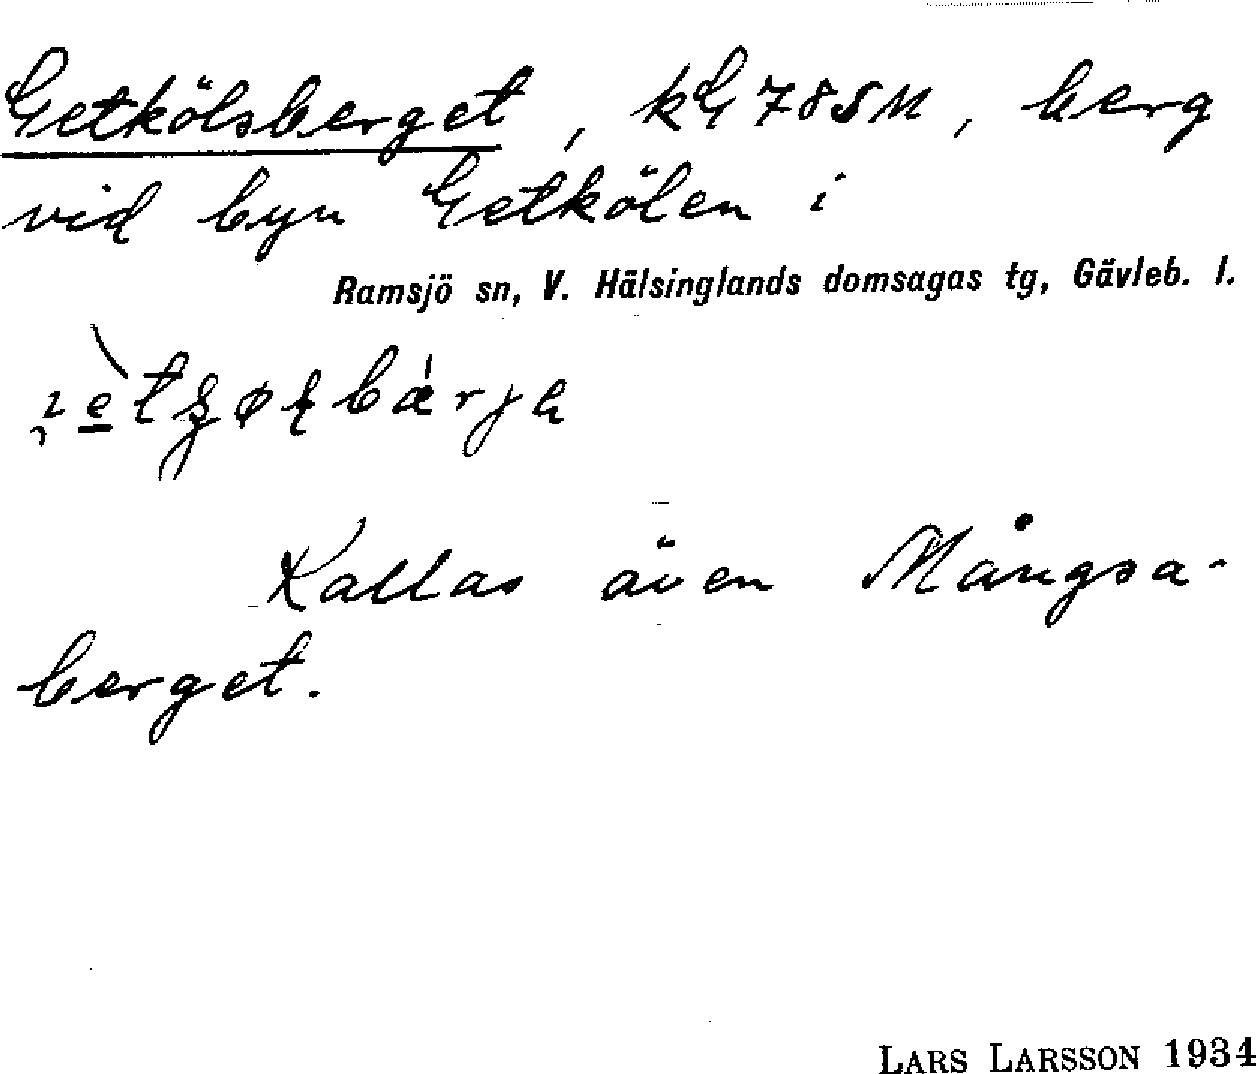 Getkölsberget, kG 78SM, berg
vid byn Getkölen i
Ramsjö sn, V. Hälsinglands domsagas tg, Gävleb. l.
Kallas även Mångsa-
berget.
LARS LARSSON 1934